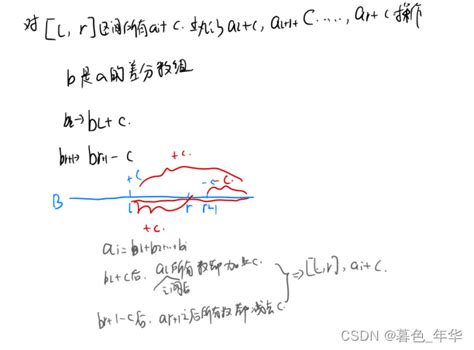 对[L, r]区间所有ai+c. 执行aL+c, aL+1+C....., ar+c操作
b是a的差分数组
bL→bL+c.
br+1→br+1-c
+c.
+c
-c
c.
B
L
r
r+1
+c.
ai=b1+b2+...+bi
bL+c后. aL所有数都加上c.
之间后
br+1-c后. ar+1之后所有数都减去c.
⇒[L,r], ai+c.
CSDN @暮色_年华